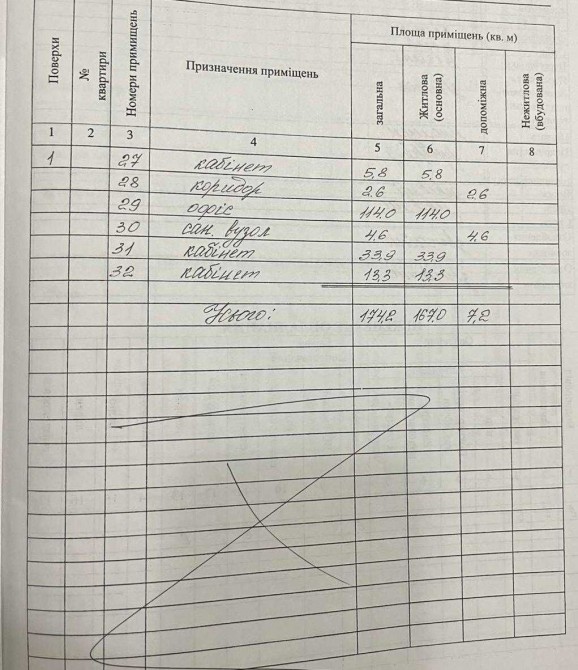 Поверхи № квартири Номери примищень Призначення приміщень Площа приміщень (кв. м)
загальна Житлова (основна) допоміжна Нежитлова (вбудована)
1 2 3 4 5 6 7 8
1 27 кабінет 5,8 5,8
28 коридор 2,6 2,6
29 офіс 114,0 114,0
30 сан. вузол 4,6 4,6
31 кабінет 33,9 33,9
32 кабінет 13,3 13,3
Усього: 174,2 167,0 7,2